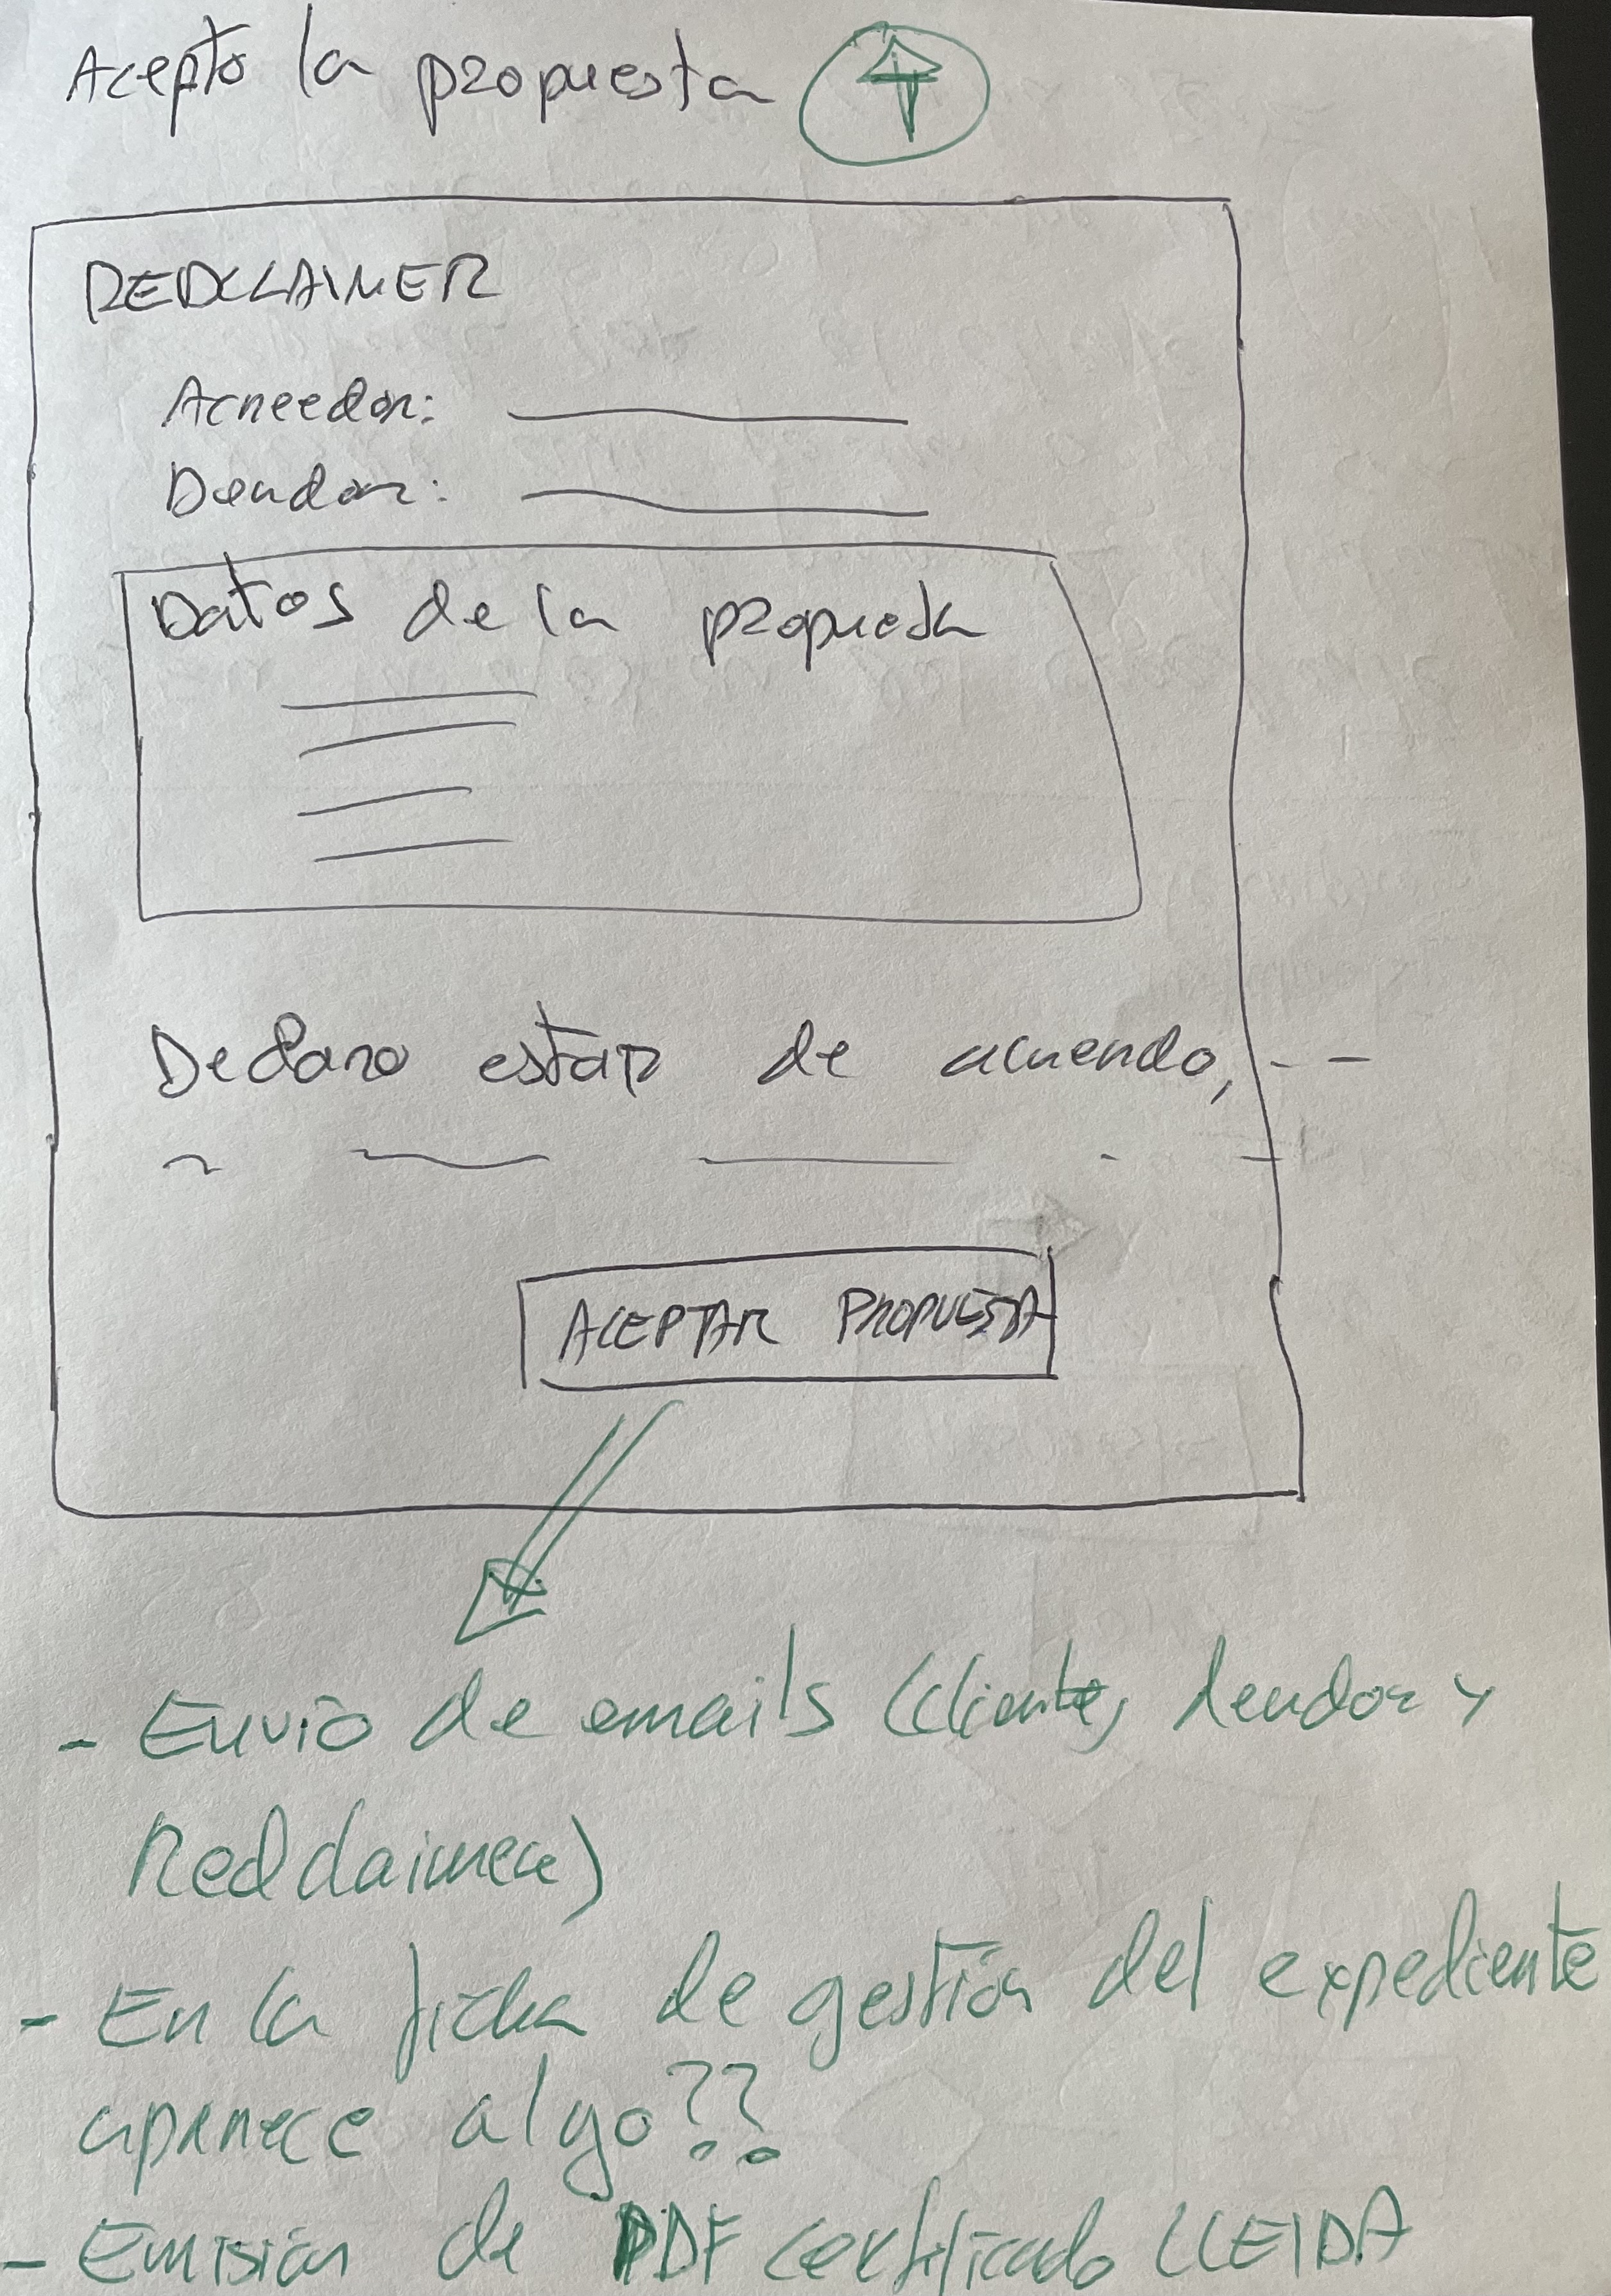 Acepto la propuesta
REDCLAIMER
Acreedor:
Deudor:
Datos de la propuesta
Declaro estar de acuerdo,
ACEPTAR PROPUESTA
- Envío de emails (cliente, deudor y
Redclaimer)
- En la ficha de gestión del expediente
aparece algo??
- Emisión de PDF certificado LLEIDA